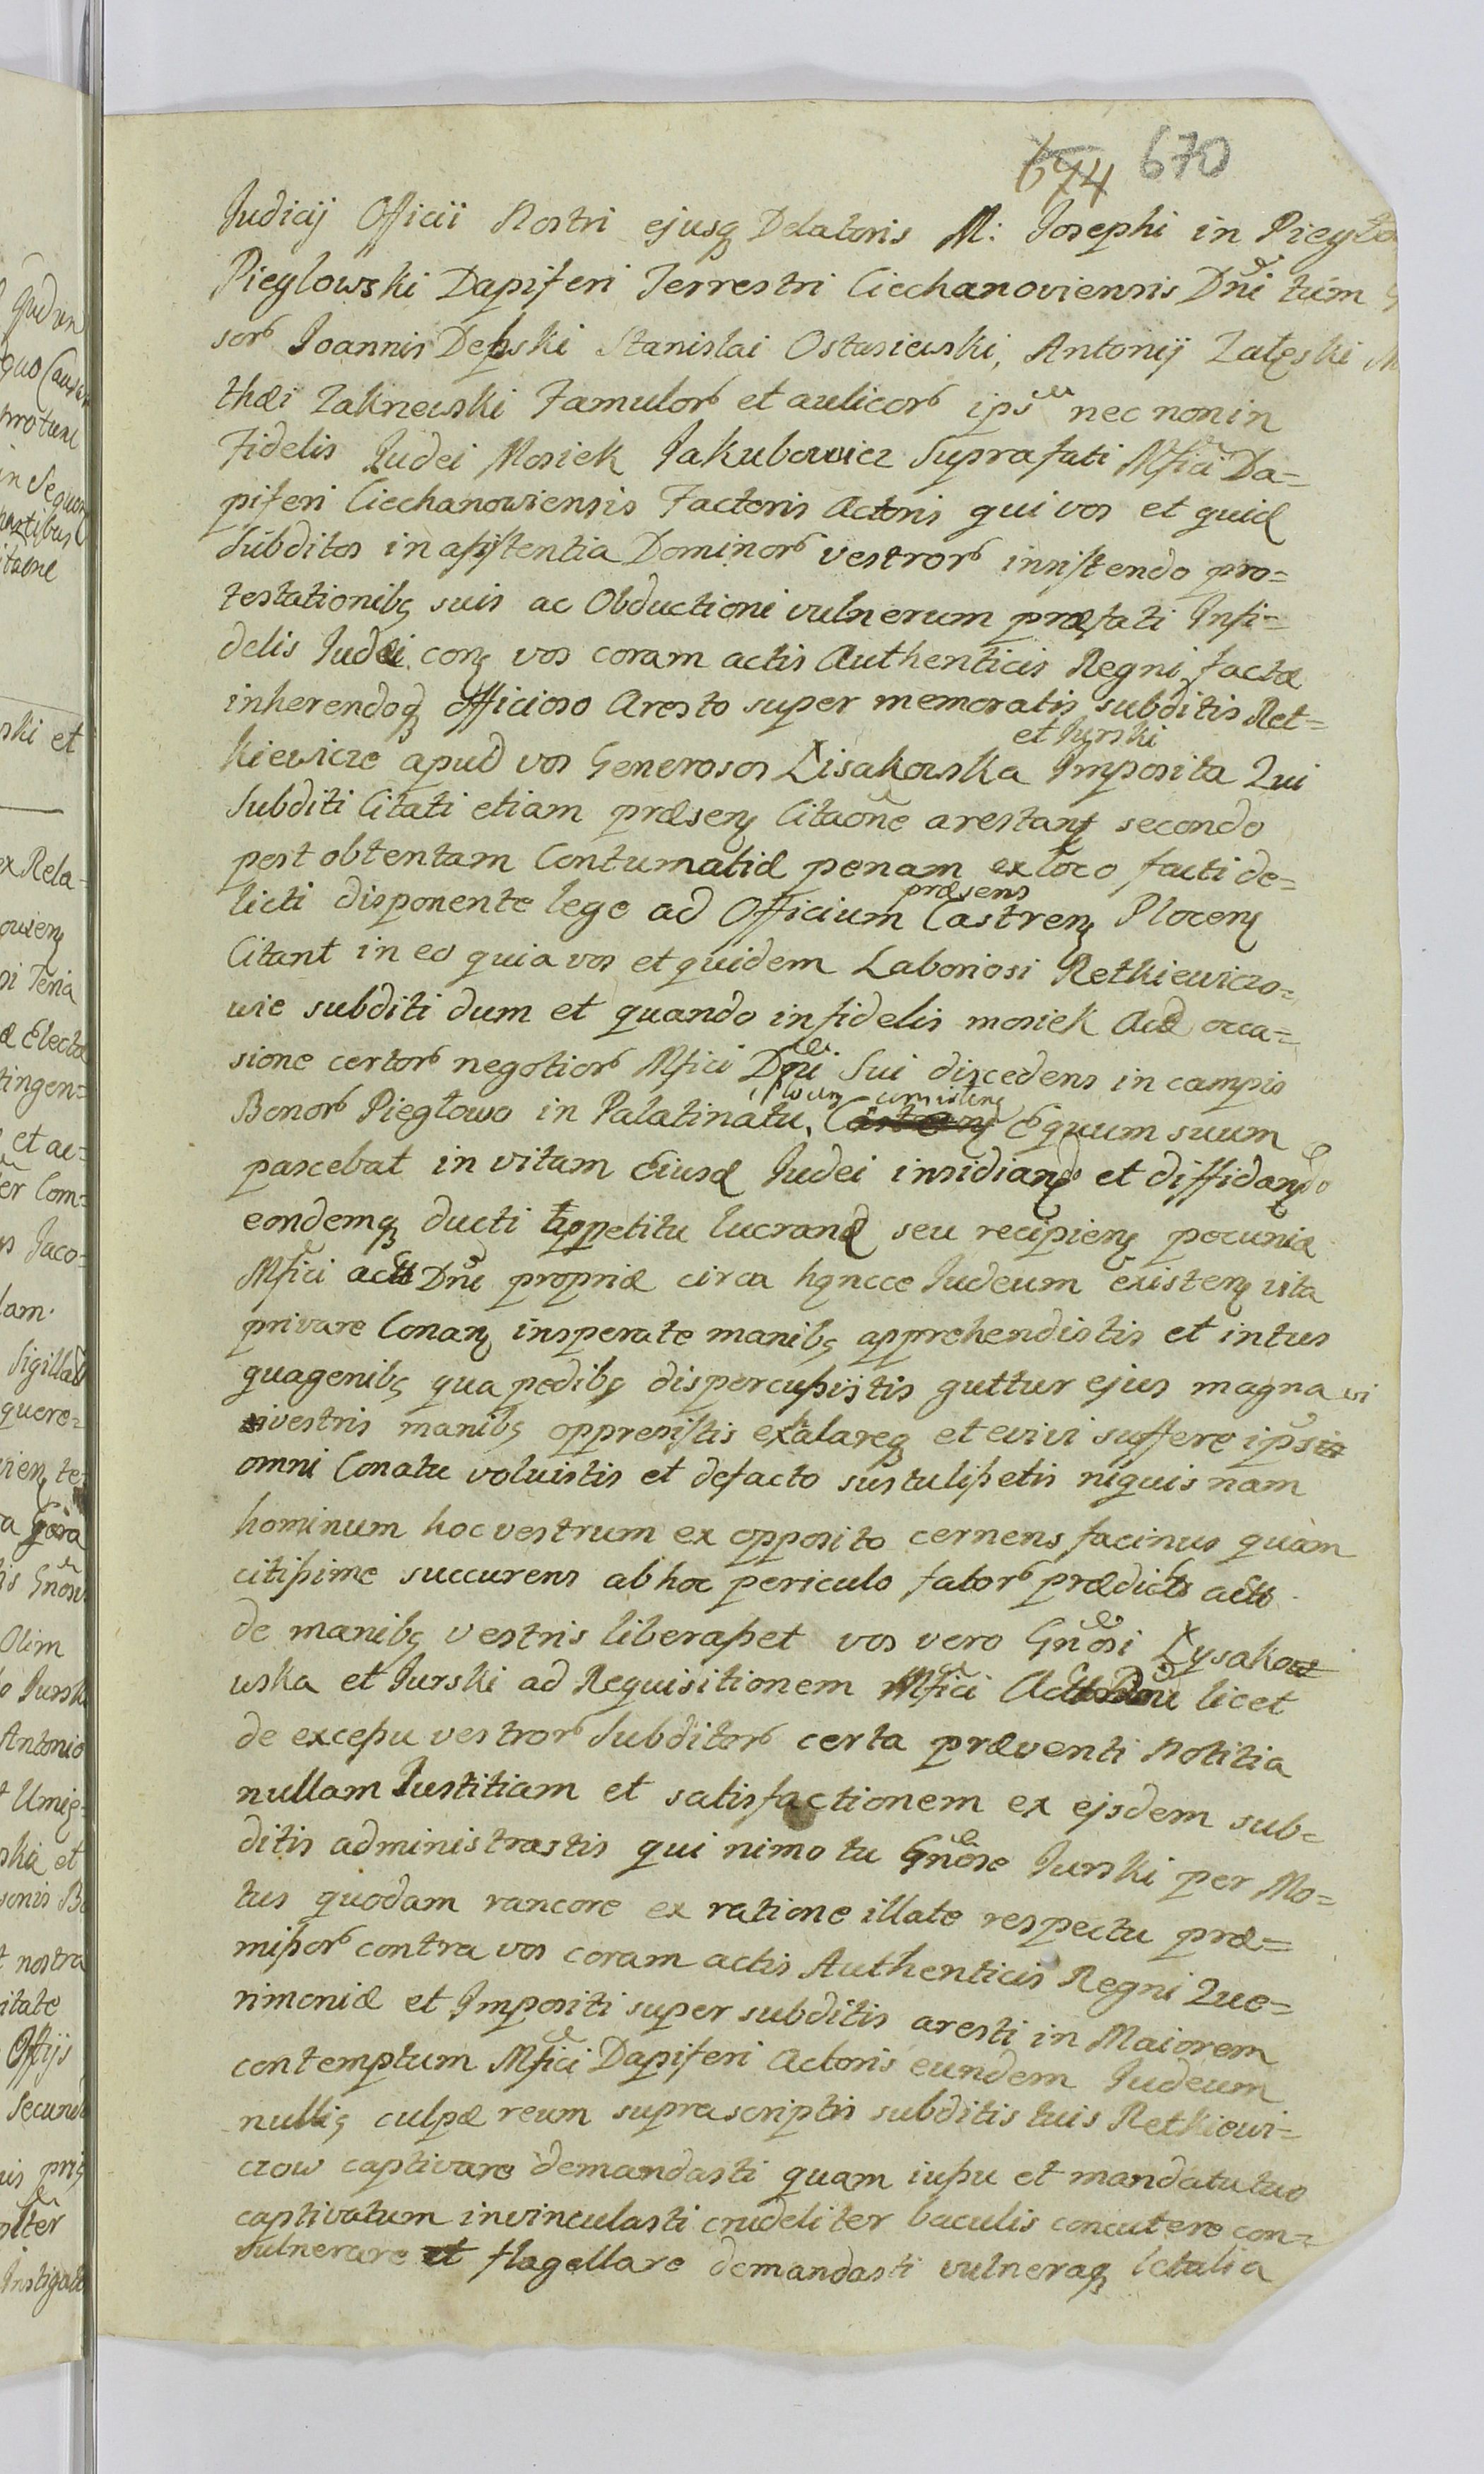 674 670
Judicij Officii Nostri ejusq Delatoris M: Josephi in Piegło
Pieglowski Dapiferi Terrestri Ciechanoviensis Dni tum
sor Joannis Depski Stanislai Ostasiewski, Antonij Zaleski M
thæi Zakrzewski Famulor et aulicor ips nec non in
Fidelis Judei Mosiek Jakubowicz Suprafati Mfici Da=
piferi Ciechanowiensis Factoris Actoris qui vos et quid
Subditos in assistentia Dominor vestror insistendo pro=
testationibq suis ac Obductioni vulnerum præfati Infi=
delis Judei conq vos coram actis Authenticis Regni factæ
inherendoq officioso Aresto super memoratis subditis Ret=
et Jurski
kiewicze apud vos Generosos Lisakowska Imposita Qui
Subditi Citati etiam præsenq Citaone arestanq secondo
post obtentam Contumatiæ penam ex loco facti de=
præsens
licti disponente lege ad Officium Castrenq Plocenq
Citant in eo quia vos et quidem Laboriosi Retkiewiczo=
wie subditi dum et quando infidelis mosiek Act occa=
sione certor negotior Mfici Dni Sui discedens in campis
consisteng
Bonor Piegłowo in Palatinatu, Equum suum
pascebat in vitam Eiusd Judei insidiando et diffidando
eondemq ducti appetitu lucrand seu recipienq pecuniæ
Mfici acts Dni propriæ circa hqncce Judeum existenq vita
privare Conanq insperate manibq apprehendistis et intus
quagenibq qua pedibq dispercussistis guttur ejus magna vi
vestris manibq oppressistis exhalareq et evivi suffere ips
omni Conatu voluistis et defacto sustulissetis niquis nam
hominum hoc vestrum ex opposito cernens facinus quàm
citissime succurens ab hoc periculo fator prædicts acts
de manibq vestris liberasset vos vero Gnosi Lysakow
wska et Jurski ad Requisitionem Mfici licet
de excessu vestror Subditor certa præventi Notitia
nullam Justitiam et satisfactionem ex ejsdem sub=
ditis administrastis qui nimo tu Gnose Jurski per Mo=
tus quodam rancore ex ratione illate respectu præ=
missor contra vos coram actis Authenticis Regni Que=
rimoniæ et Impositi super subditis aresti in Maiorem
contemptum Mfici Dapiferi Actoris eundem Judeum
nulliq culpæ reum supra scriptis subditis tuis Retkiewi=
czow captivare demandasti quam iussu et mandatu tuo
captivatum invinculasti crudeliter baculis concutere con=
vulnerare et flagellare demandasti vulneraq letalia